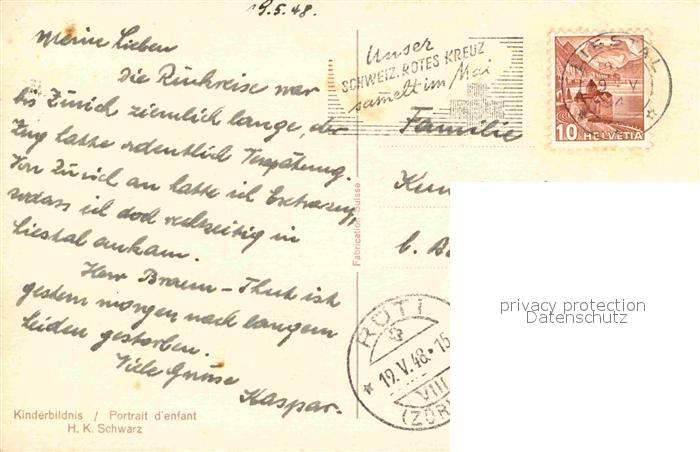 19.5.48.
Meine Lieben
Die Rückreise war
bis Zürich ziemlich lange, der
Zug hatte ordentlich Verspätung.
Von Zürich an hatte ich Extrazug,
sodass ich doch rechtzeitig in
Liestal ankam.
Herr Braun-Thut ist
gestern morgen nach langem
Leiden gestorben.
Viele Grüsse
Kaspar.
Kinderbildnis / Portrait d'enfant
H. K. Schwarz
Fabrication Suisse
Unser
SCHWEIZ. ROTES KREUZ
sammelt im Mai
LIESTAL
10 HELVETIA
Familie
b.
RÜTI
19.V.48-15
VIII
(ZÜR
privacy protection
Datenschutz